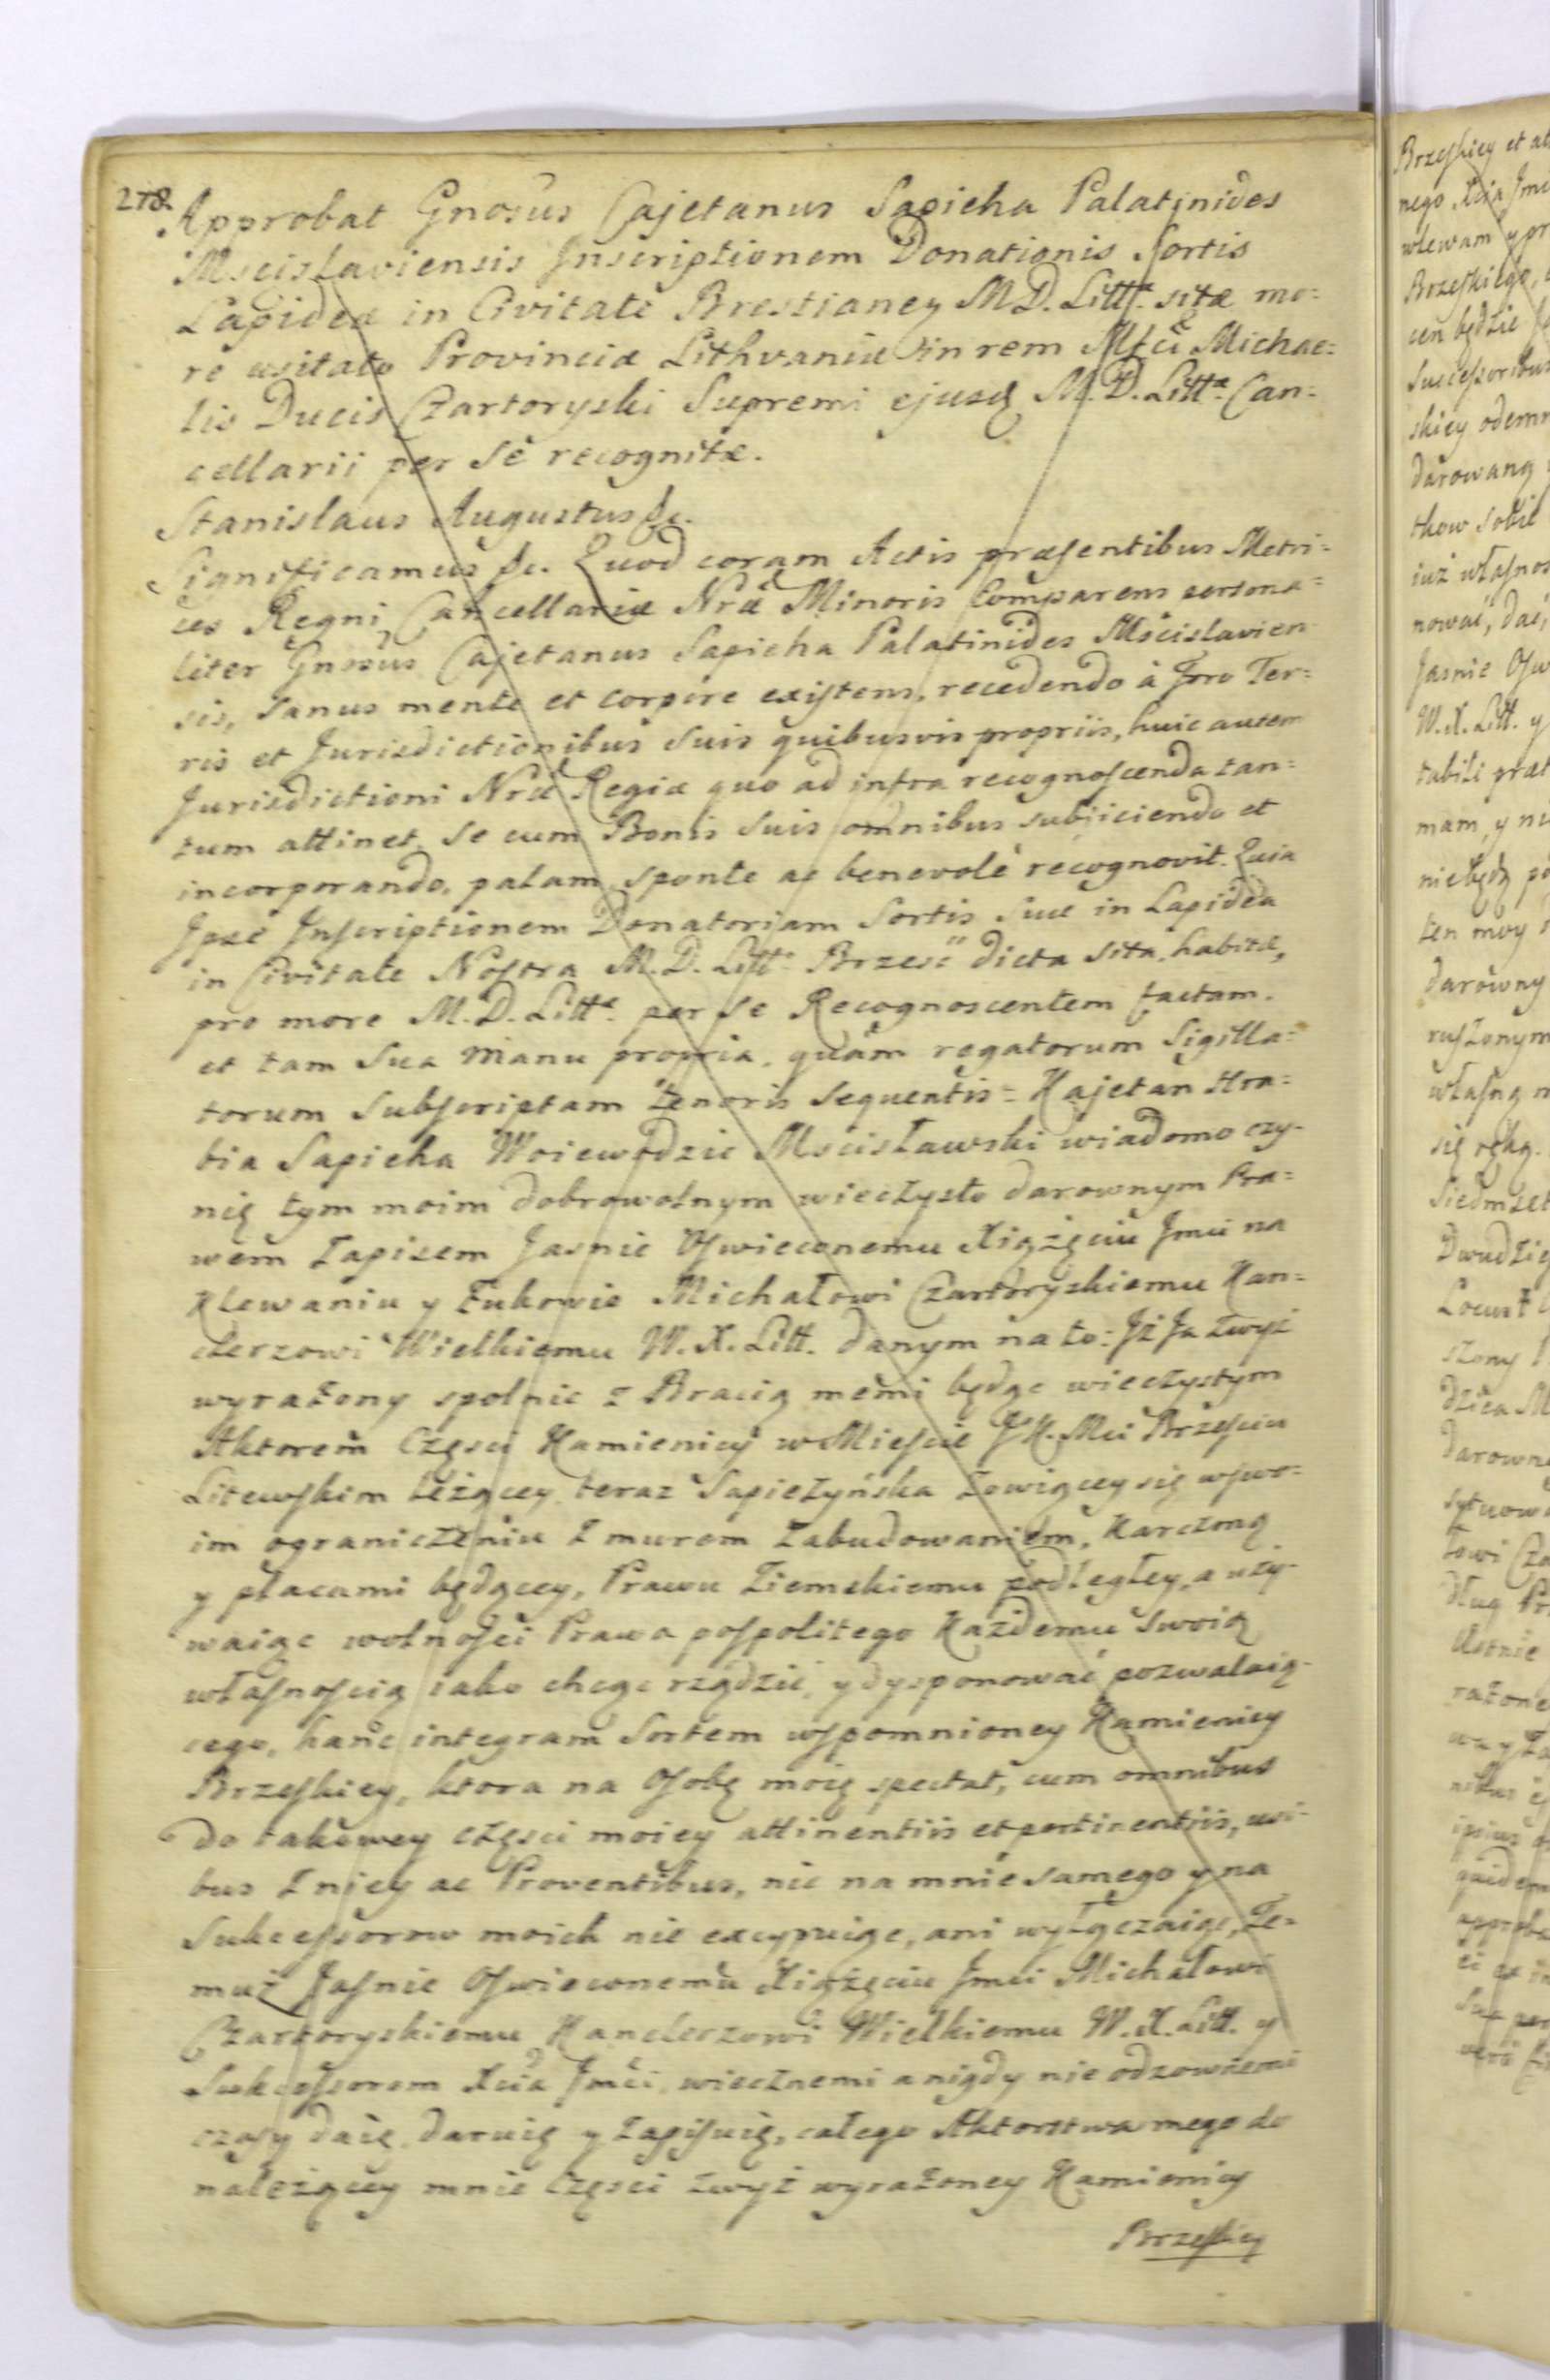 278.
Approbat Gnosus Cajetanus Sapieha Palatinides
Mscislaviensis Inscriptionem Donationis Sortis
Lapideæ in Civitate Brestianey M.D. Littæ. sitæ mo=
re usitato Provinciæ Lithvaniæ in rem Mfci Michae=
lis Ducis Czartoryski Supremi ejusq M.D. Littæ. Can=
cellarii per Se recognitæ.
Stanislaus Augustus &c.
Significamus &c. Quod coram Actis præsentibus Metri=
ces Regni Cancellariæ Nræ Minoris Comparens persona=
liter Gnosus Cajetanus Sapieha Palatinides Mscislavien
sis, Sanus mente et corpore existens, recedendo à Foro Ter=
ris et Jurisdictionibus Suis quibusvis propriis, huic autem
Jurisdictioni Nræ Regiæ quo ad infra recognoscenda tan=
tum attinet, Se cum Bonis Suis omnibus subijiciendo et
incorporando, palam, sponte ac benevolè recognovit. Quia
Ipse Inscriptionem Donatoriam Sortis Suæ in Lapidea
in Civitate Nostra M.D. Littæ Brzesc dicta sita, habitæ,
pro more M.D. Littæ. per Se Recognoscentem factam.
et tam Sua manu propria, quàm rogatorum Sigilla=
torum Subscriptam tenoris sequentis = Kajetan Hra=
bia Sapieha Woiewodzic Mscisławski wiadomo czy-
nię tym moim dobrowolnym wieczysto darownym Pra=
wem Zapisem Jasnie Oswieconemu Xiążęciu Jmci na
Klewaniu y Żukowie Michałowi Czartoryskiemu Kan=
clerzowi Wielkiemu W.X. Litt. danym na to: Iż Ja zwyż
wyrażony spolnie z Bracią memi będąc wieczystym
Aktorem Częsci Kamienicy w Miescie J.K.Mci Brzesciu
Litewskim leżącey teraz Sapieżyńska zowiącey się w swo=
im ograniczeniu z murem zabudowaniem, Karczmą
y placami będącey, Prawu Ziemskiemu podległey, a uży-
waiąc wolnosci Prawa pospolitego Każdemu Swoią
własnoscią iako chcąc rządzić, y dysponować pozwalaią-
cego, hanc integram Sortem wspomnioney Kamienicy
Brzeskiey, ktora na Osobę moię spectat, cum omnibus
do takowey częsci moiey attinentiis et pertinentiis, usi-
bus z niey ac Proventibus, nic na mnie samego y na
Sukcessorow moich nie excypuiąc, ani wyłączaiąc, Te=
muż Jasnie Oswieconemu Xiążęciu Jmci Michałowi
Czartoryskiemu Kanclerzowi Wielkiemu W.X. Litt. y
Sukcessorom Xcia Jmci, wiecznemi a nigdy nie odzownemi
czasy daię, daruię y zapisuię, całego Aktorstwa mego do
należącey mnie Częsci zwyż wyrażoney Kamienicy
Brzeskiey
Brzeskiey et
nego Xcia Jmci
wlewam y
Brzeskiego,
cen będzie
Successoribus
skiey odemn
darowaną
tkow sobie
iuż własnos
nować, dać,
Jasnie Osw
W.X. Litt. y
mam, y
ten moy
darowny
ruszonym
własną
się ręką.
Siedmset
Dwudzie